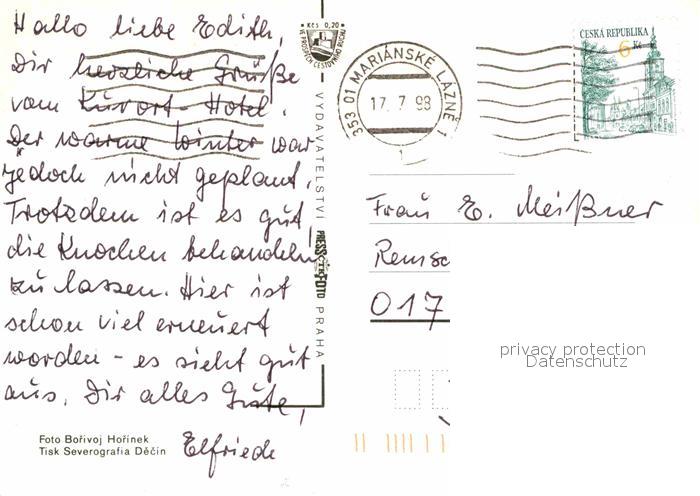 Hallo liebe Edith,
Dir herzliche Grüße
vom Kurort-Hotel.
Der warme Winter war
jedoch nicht geplant.
Trotzdem ist es gut
die Knochen behandeln
zu lassen. Hier ist
schon viel erneuert
worden - es sieht gut
aus. Dir alles Gute,
Elfriede
Foto Bořivoj Hořínek
Tisk Severografia Děčín
Kčs 0,20
VE PROSPĚCH CESTOVNÍHO RUCHU
VYDAVATELSTVÍ PRESSFOTO PRAHA
353 01 MARIÁNSKÉ LÁZNĚ 1
17.7.98
ČESKÁ REPUBLIKA
6 Kč
Frau E. Meißner
Remsc
017
privacy protection
Datenschutz